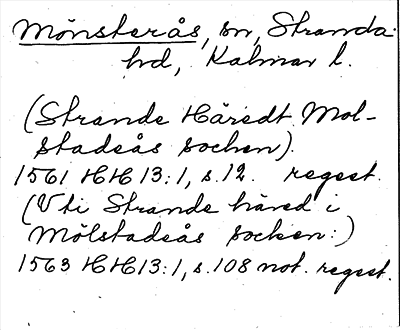 Mönsterås, sn, Stranda
hd, Kalmar l.
(Strande Häredt Mol-
stadeås sochen).
1561 HH 13:1, s. 12. regest.
(Vti Strande häred i
Mölstadeås socken:)
1563 HH 13:1, s. 108 not. regest.